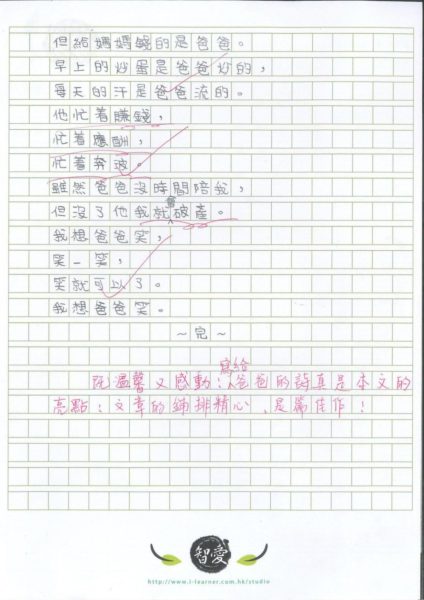 但給媽媽錢的是爸爸。
早上的炒蛋是爸爸炒的，
每天的汗是爸爸流的。
他忙着賺錢，
忙着應酬，
忙着奔波。
雖然爸爸沒時間陪我，
但沒了他我就會破產。
我想爸爸笑，
笑一笑，
笑就可以了。
我想爸爸笑。
～完～
既溫馨又感動！寫給爸爸的詩真是本文的
亮點！文章的鋪排精心，是篇佳作！
智愛
http://www.i-learner.com.hk/studio